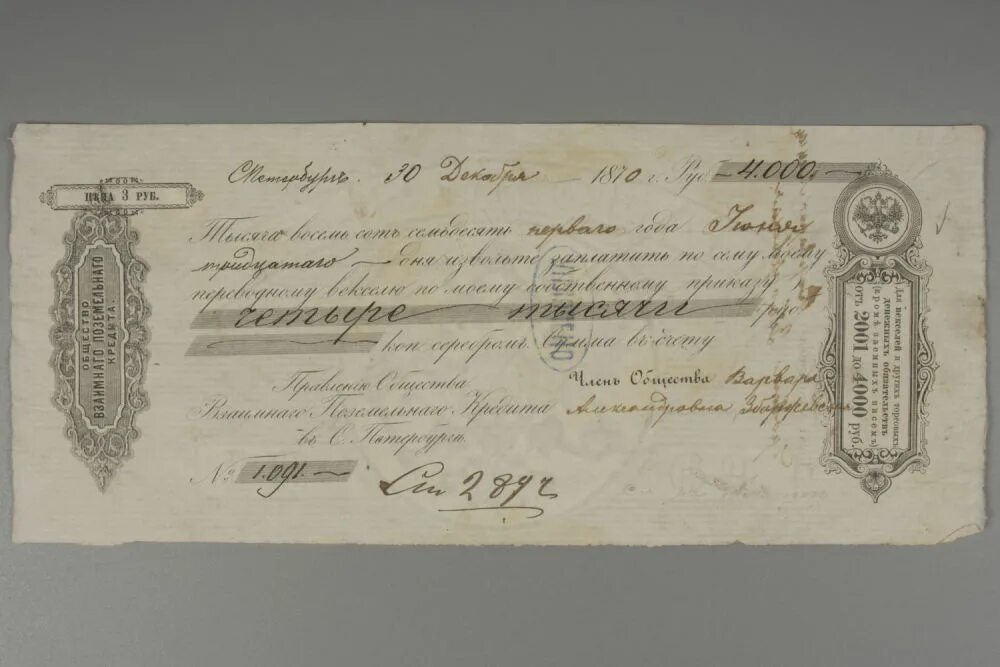 С.Петербургъ. 30 Декабря 1870 г. Руб. 4.000.
Тысяча восемь сотъ семьдесятъ перваго года Іюня
тридцатаго дня извольте заплатить по сему моему
переводному векселю по моему собственному приказу
четыре тысячи руб.
коп. серебромъ. Сумма въ счету
Правленію Общества
Взаимнаго Поземельнаго Кредита
въ С. Петербургѣ.
Членъ Общества Варвара
Александровна
№ 1.091.
2894
ЦѢНА 3 РУБ.
ОБЩЕСТВО
ВЗАИМНАГО ПОЗЕМЕЛЬНАГО
КРЕДИТА.
Для векселей и другихъ торговыхъ
денежныхъ обязательствъ
(кромѣ заемныхъ писемъ)
отъ 2001 до 4000 руб.